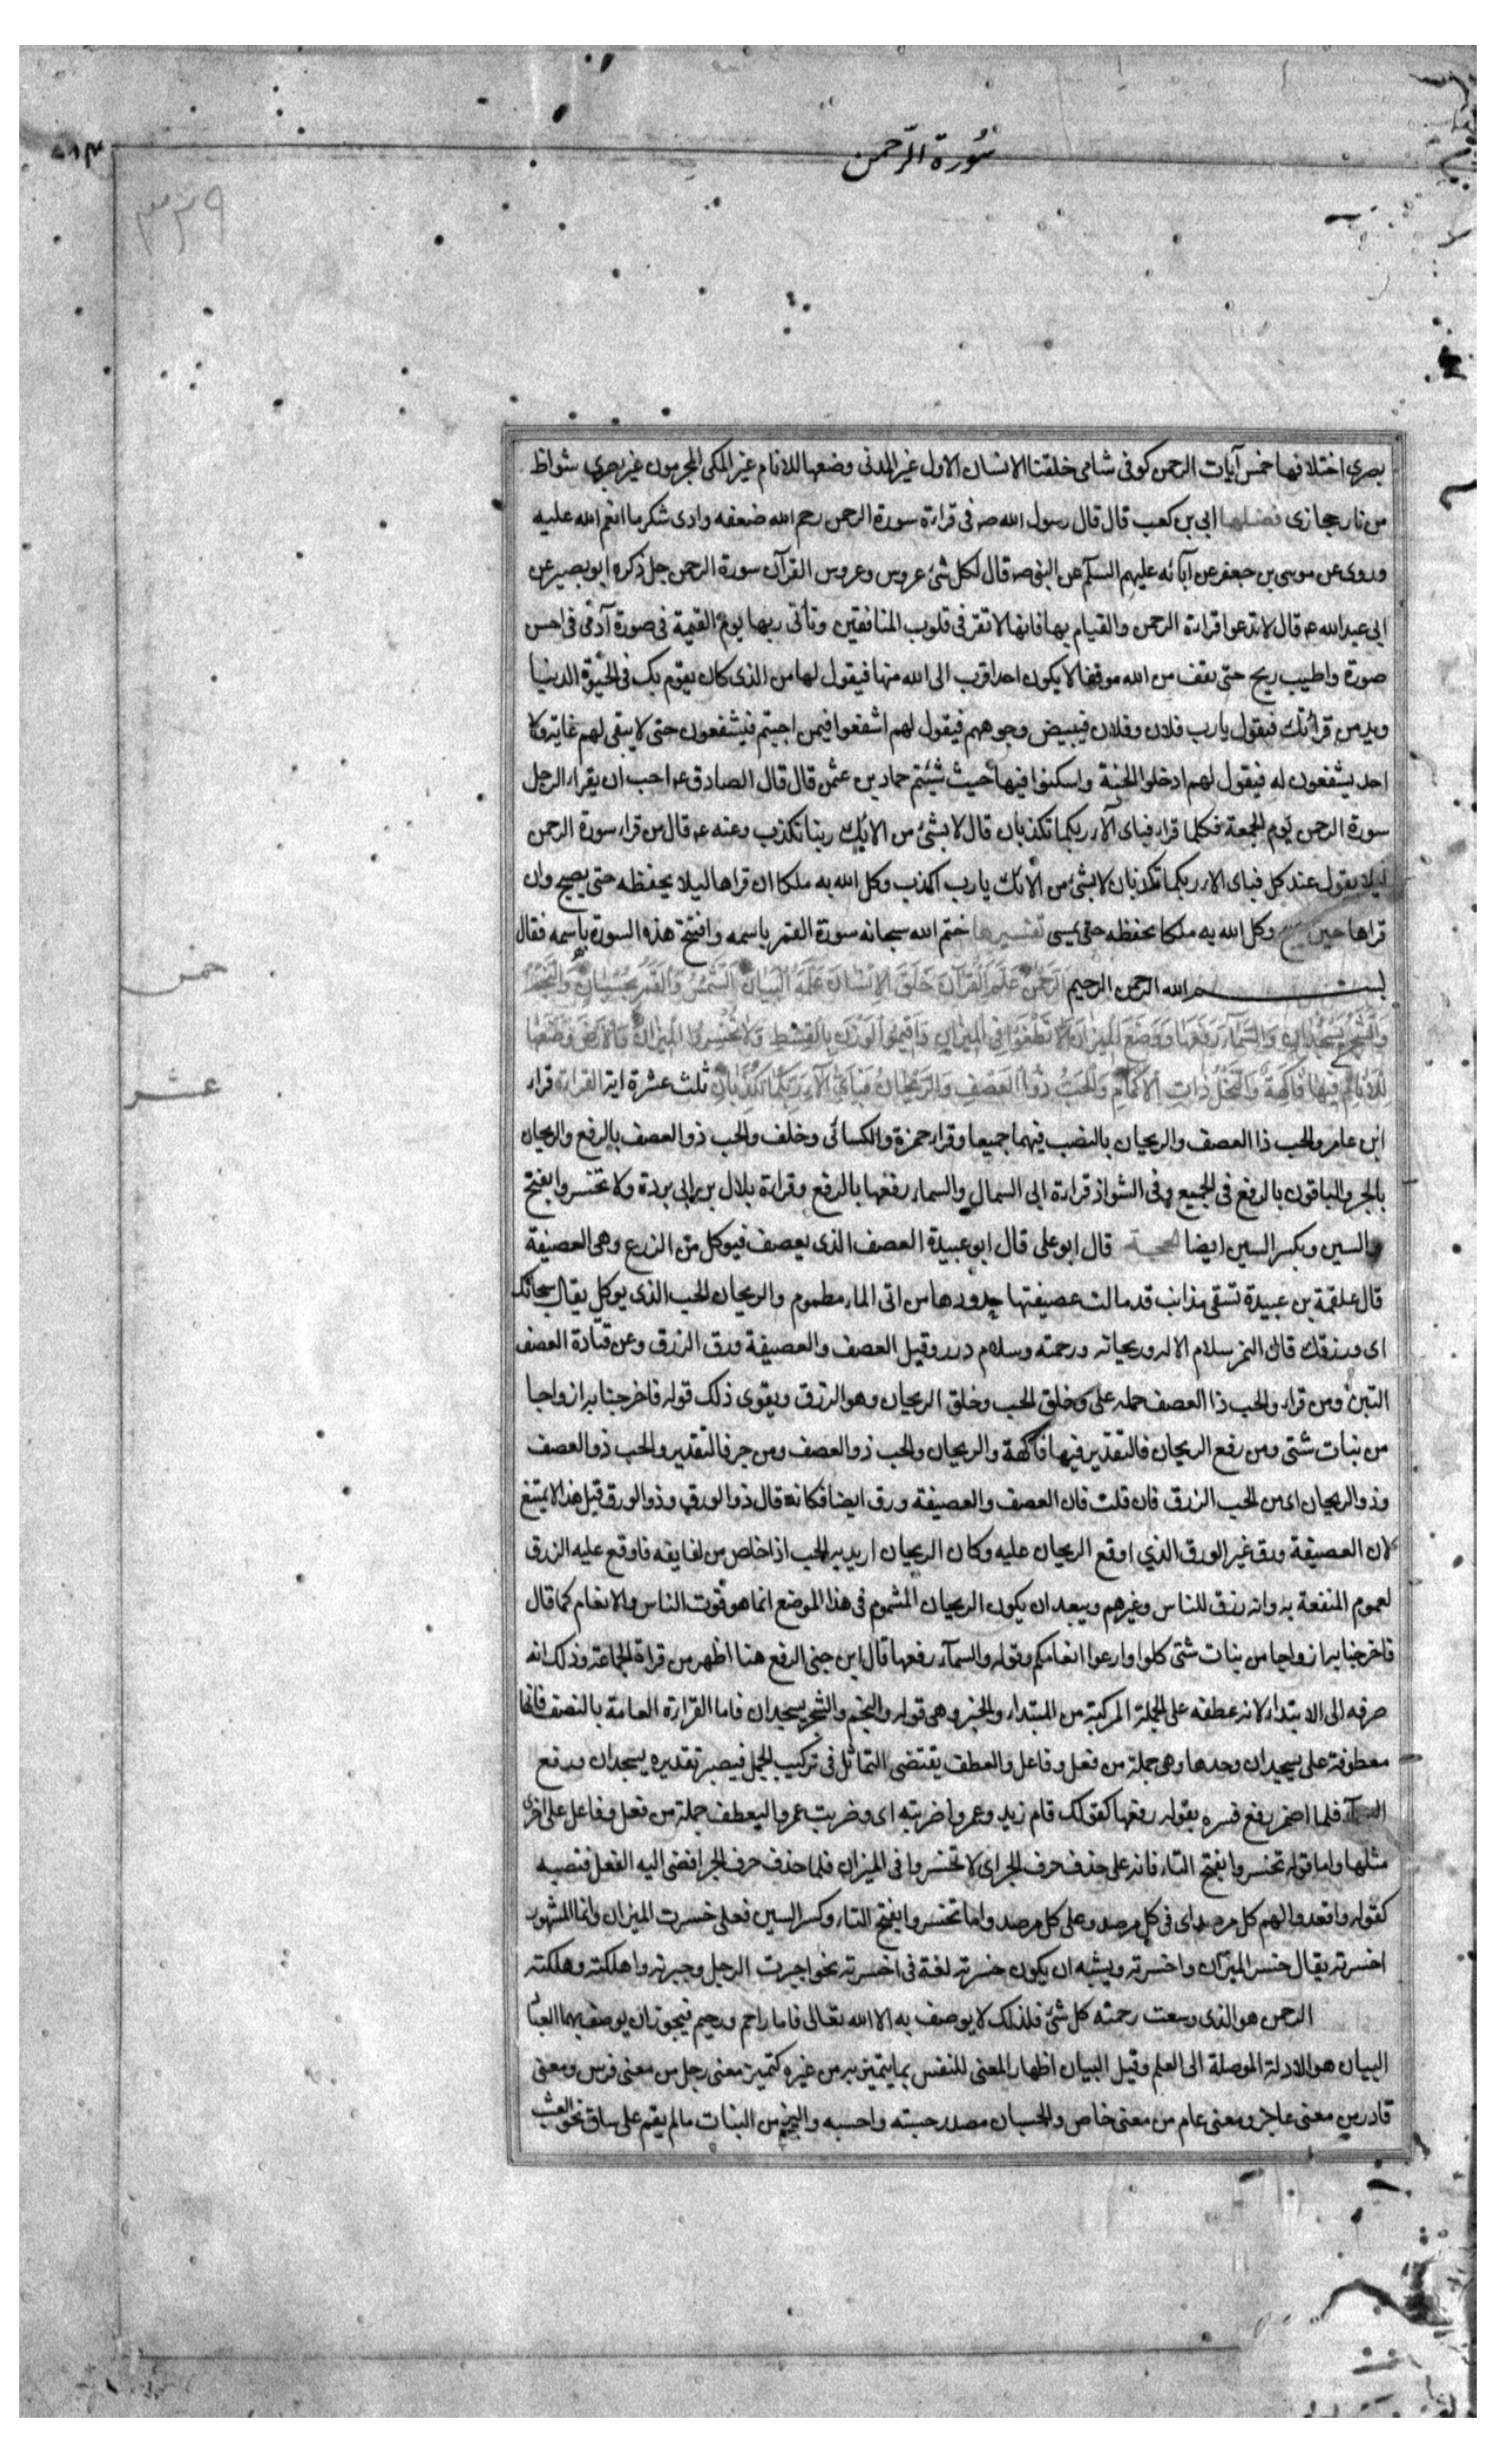 سورة الرحمن
٣٢٩
بصرى اختلافها خمس آيات الرحمن كوفى شامى خلقنا الانسان الاول غير المدنى وضعها للانام غير المكى المجرمون غير بصرى شواظ
من نار حجازى فضلها ابى بن كعب قال قال رسول الله صه فى قراءة سورة الرحمن رحم الله ضعفه وادى شكر ما انعم الله عليه
وروى عن موسى بن جعفر عن آبائه عليهم السلام عن النبى صه قال لكل شئ عروس وعروس القرآن سورة الرحمن جل ذكره ابو بصير عن
ابى عبد الله عه قال لا تدعوا قراءة الرحمن والقيام بها فانها لا تقر فى قلوب المنافقين وتأتى ربها يوم القيمة فى صورة آدمى فى احسن
صورة واطيب ريح حتى تقف من الله موقفا لا يكون احد اقرب الى الله منها فيقول لها من الذى كان يقوم بك فى الحيوة الدنيا
ويدمن قرائتك فيقول يا رب فلان وفلان فيبيض وجوههم فيقول لهم اشفعوا فيمن احببتم فيشفعون حتى لا يبقى لهم غاية ولا
احد يشفعون له فيقول لهم ادخلوا الجنة واسكنوا فيها حيث شئتم حماد بن عثمن قال قال الصادق عه احب ان يقراء الرجل
سورة الرحمن يوم الجمعة فكلما قراء فباى آلاء ربكما تكذبان قال لا بشئ من آلائك ربنا نكذب وعنه عه قال من قراء سورة الرحمن
ليلا يقول عند كل فباى آلاء ربكما تكذبان لا بشئ من آلائك يا رب اكذب وكل الله به ملكا ان قراها ليلا يحفظه حتى يصبح وان
قراها حين يصبح وكل الله به ملكا يحفظه حتى يمسى تفسيرها ختم الله سبحانه سورة القمر باسمه وافتتح هذه السورة باسمه فقال
بسم الله الرحمن الرحيم الرحمن علم القرآن خلق الانسان علمه البيان الشمس والقمر بحسبان والنجم
خمس
والشجر يسجدان والسماء رفعها ووضع الميزان الا تطغوا فى الميزان واقيموا الوزن بالقسط ولا تخسروا الميزان والارض وضعها
للانام فيها فاكهة والنخل ذات الاكمام والحب ذوا العصف والريحان فباى آلاء ربكما تكذبان ثلث عشرة اية القراءة قراء
عشر
ابن عامر والحب ذا العصف والريحان بالنصب فيهما جميعا وقراء حمزة والكسائى وخلف والحب ذو العصف بالرفع والريحان
بالجر والباقون بالرفع فى الجميع وفى الشواذ قراءة ابى السمال والسماء رفعها بالرفع وقراءة بلال بن ابى بردة ولا تخسروا بفتح
والسين وبكسر السين ايضا الحجة قال ابو على قال ابو عبيدة العصف الذى يعصف فيوكل من الزرع وهى العصيفة
قال علقمة بن عبيدة تسقى مذانب قد مالت عصيفتها جدورها من اتى الماء مطموم والريحان الحب الذى يوكل يقال سبحانك
اى ورزقك قال النمر سلام الاله وريحانه ورحمته وسلام درر وقيل العصف والعصيفة ورق الزرق وعن قتادة العصف
التبن ومن قراء والحب ذا العصف حمله على وخلق الحب وخلق الريحان وهو الرزق ويقوى ذلك قوله فاخرجنا به ازواجا
من نبات شتى ومن رفع الريحان فالتقدير فيها فاكهة والريحان والحب ذو العصف ومن جر فالتقدير والحب ذو العصف
وذو الريحان اى من الحب الرزق فان قلت فان العصف والعصيفة ورق ايضا فكانه قال ذو الورق وذو الورق قيل هذا لا يمتنع
لان العصيفة ورق غير الورق الذى اوقع الريحان عليه وكان الريحان اريد به الحب اذا خلص من لفايفه فاوقع عليه الرزق
لعموم المنفعة به وانه رزق للناس وغيرهم ويبعد ان يكون الريحان المشموم فى هذا الموضع انما هو قوت الناس والانعام كما قال
فاخرجنا به ازواجا من نبات شتى كلوا وارعوا انعامكم وقوله والسماء رفعها قال ابن جنى الرفع هنا اظهر من قراءة الجماعة وذلك انه
صرفه الى الابتداء لانه عطفه على الجملة المركبة من المبتداء والخبر وهى قوله والنجم والشجر يسجدان فاما القراءة العامة بالنصب فانها
معطوفة على يسجدان وحدها وهى جملة من فعل وفاعل والعطف يقتضى التماثل فى تركيب الجمل فيصير تقديره يسجدان ورفع
السماء فلما اضمر رفع فسره بقوله رفعها كقولك قام زيد وعمروا ضربته اى وضربت عمروا ليعطف جملة من فعل وفاعل على اخرى
مثلها واما قوله تخسروا بفتح التاء فانه على حذف حرف الجر اى لا تخسروا فى الميزان فلما حذف حرف الجر افضى اليه الفعل فنصبه
كقوله واقعدوا لهم كل مرصد اى فى كل مرصد وعلى كل مرصد واما تخسروا بفتح التاء وكسر السين فعلى خسرت الميزان وانما المشهور
اخسرته يقال خسر الميزان واخسرته ويشبه ان يكون خسرته لغة فى اخسرته نحو اجبرت الرجل وجبرته واهلكته وهلكته
الرحمن هو الذى وسعت رحمته كل شئ فلذلك لا يوصف به الا الله تعالى فاما راحم ورحيم فيجوز ان يوصف بهما العباد
البيان هو الادلة الموصلة الى العلم وقيل البيان اظهار المعنى للنفس بما يتميز به من غيره كتميز معنى رجل من معنى فرس ومعنى
قادر من معنى عاجز ومعنى عام من معنى خاص والحسبان مصدر حسبته واحسبه والنجم من النبات ما لم يقم على ساق نحو العشب